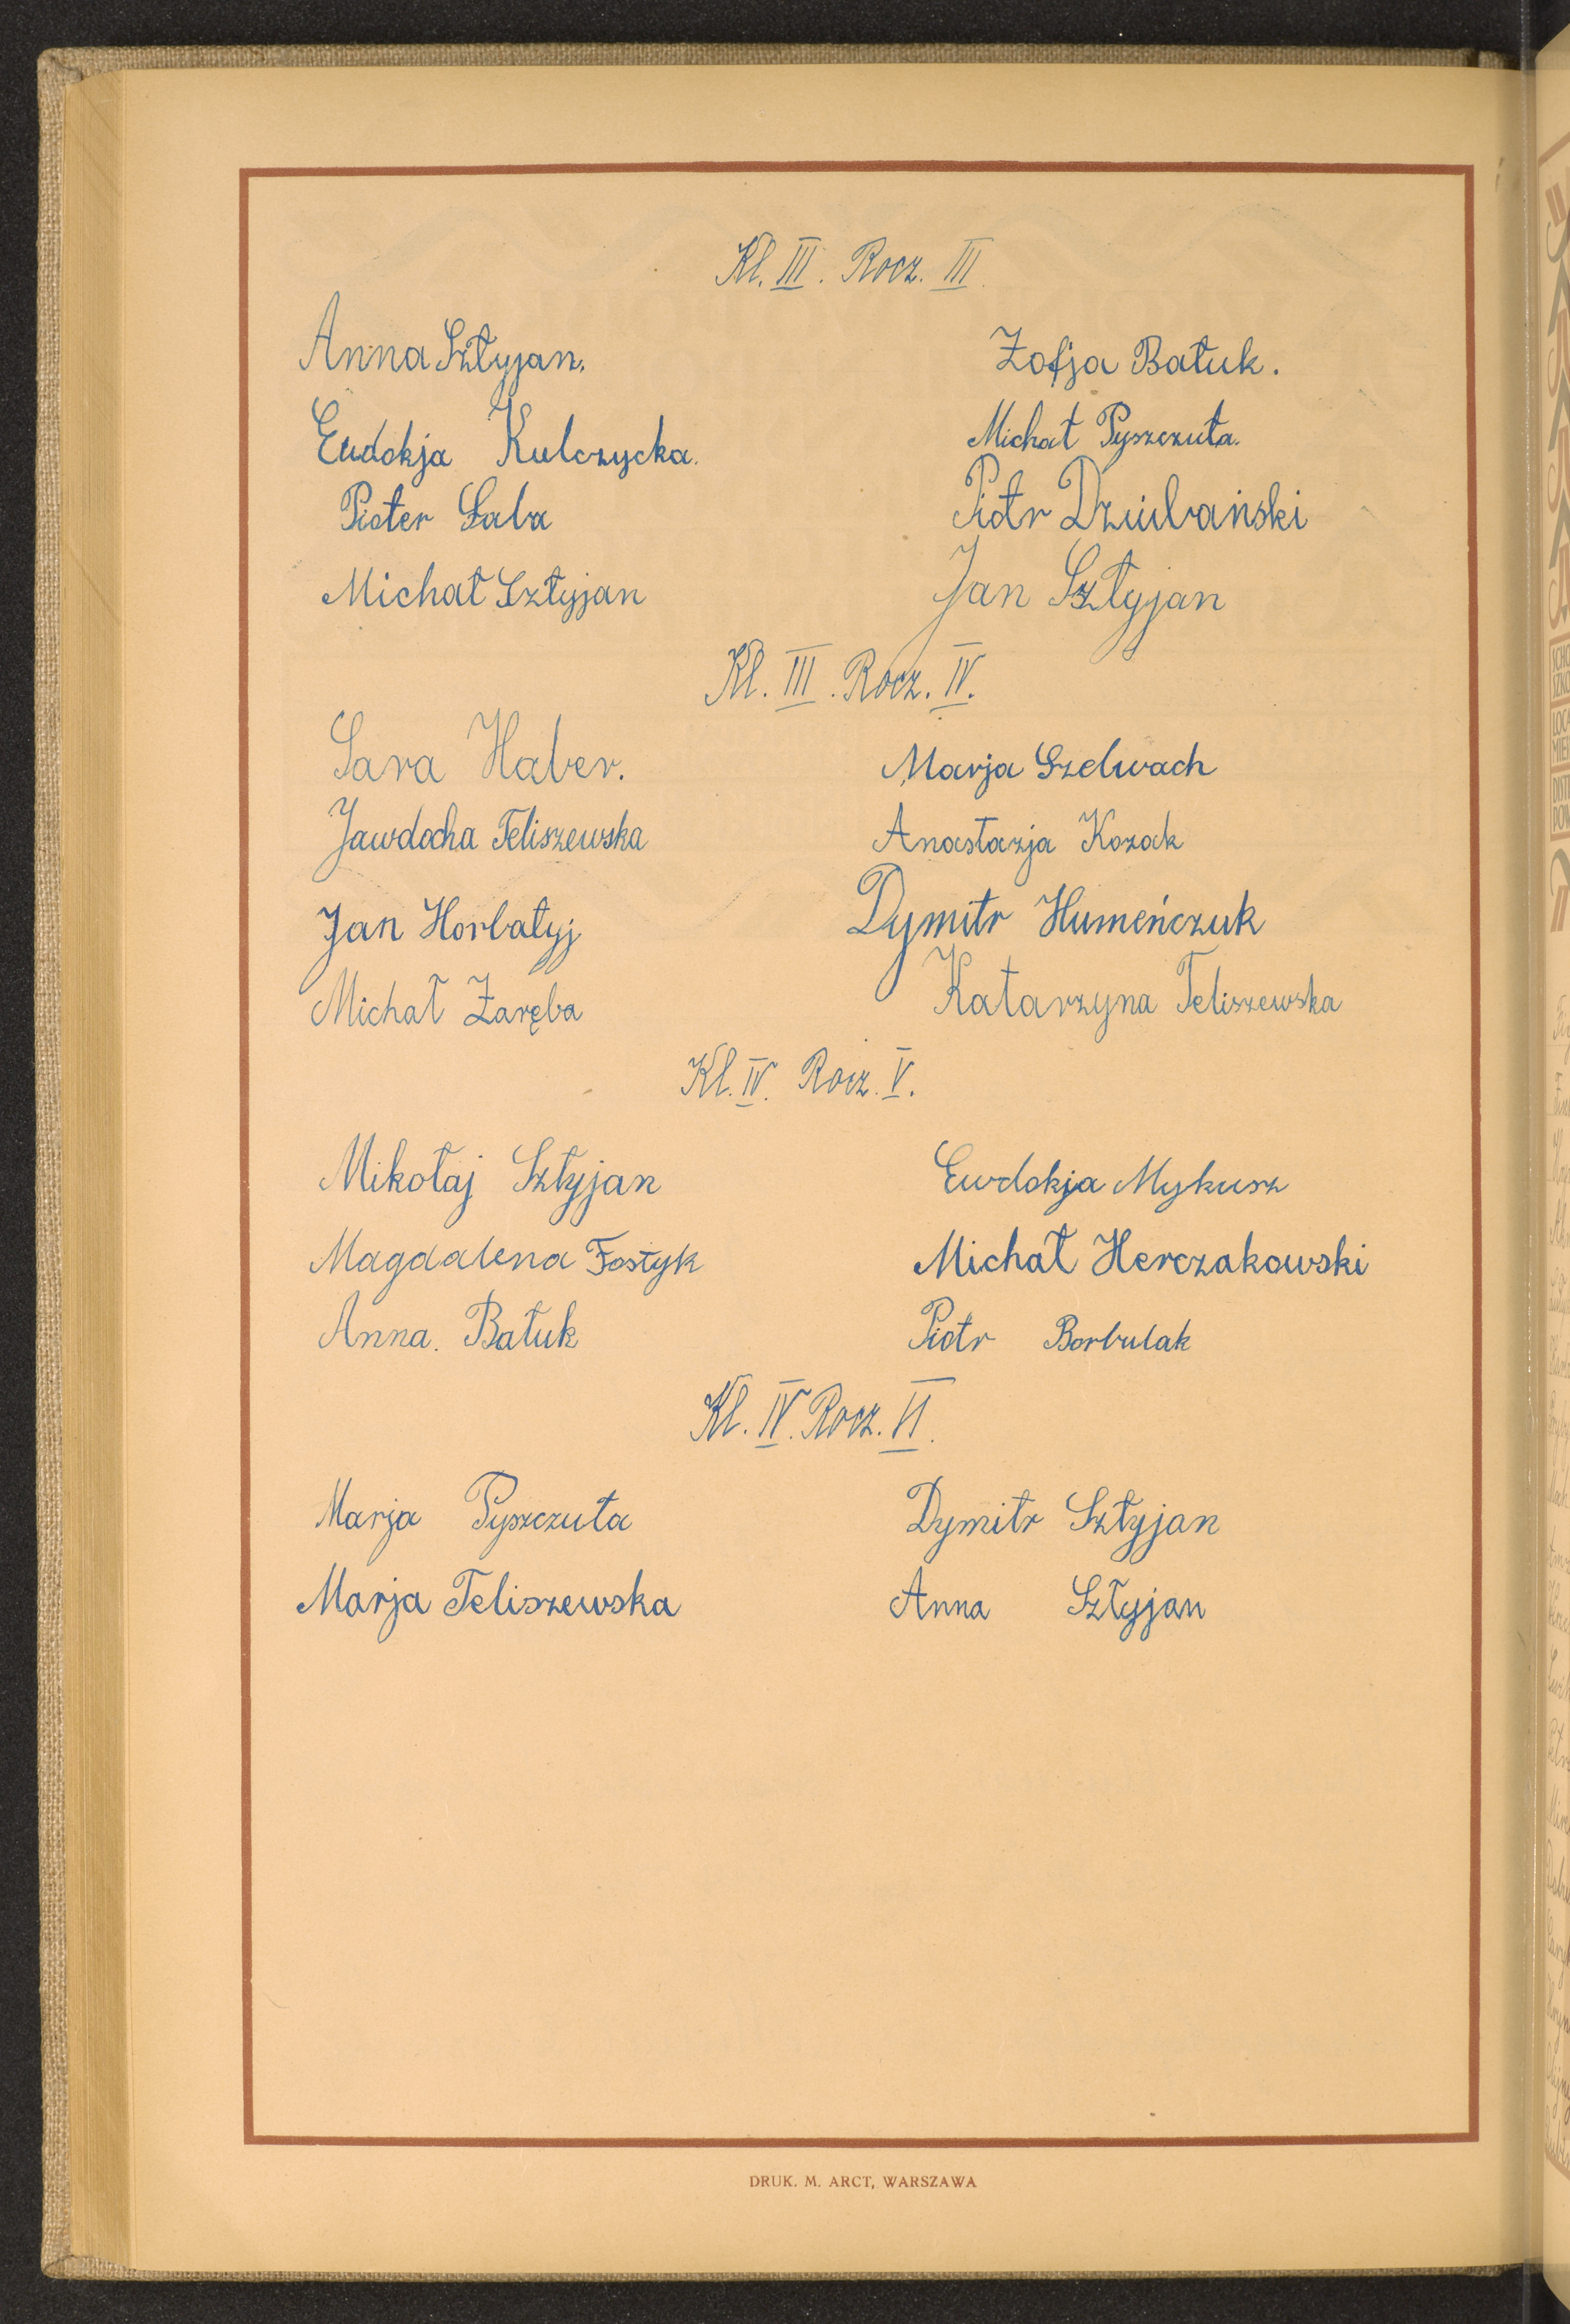 Kl. III. Rocz. III.
Anna Sztyjan. Zofja Batuk.
Eudokja Kulczycka. Michał Pyszczuta.
Pioter Saba Piotr Dziubański
Michał Sztyjan Jan Sztyjan
Kl. III. Rocz. IV.
Sara Haber. Marja Szelwach
Jawdocha Teliszewska Anastazja Kozak
Jan Horbatyj Dymitr Humeńczuk
Michał Zaręba Katarzyna Teliszewska
Kl. IV. Rocz. V.
Mikołaj Sztyjan Ewdokja Mykusz
Magdalena Fostyk Michał Herczakowski
Anna. Batuk Piotr Borbulak
Kl. IV. Rocz. VI.
Marja Pyszczuta Dymitr Sztyjan
Marja Teliszewska Anna Sztyjan
DRUK. M. ARCT, WARSZAWA